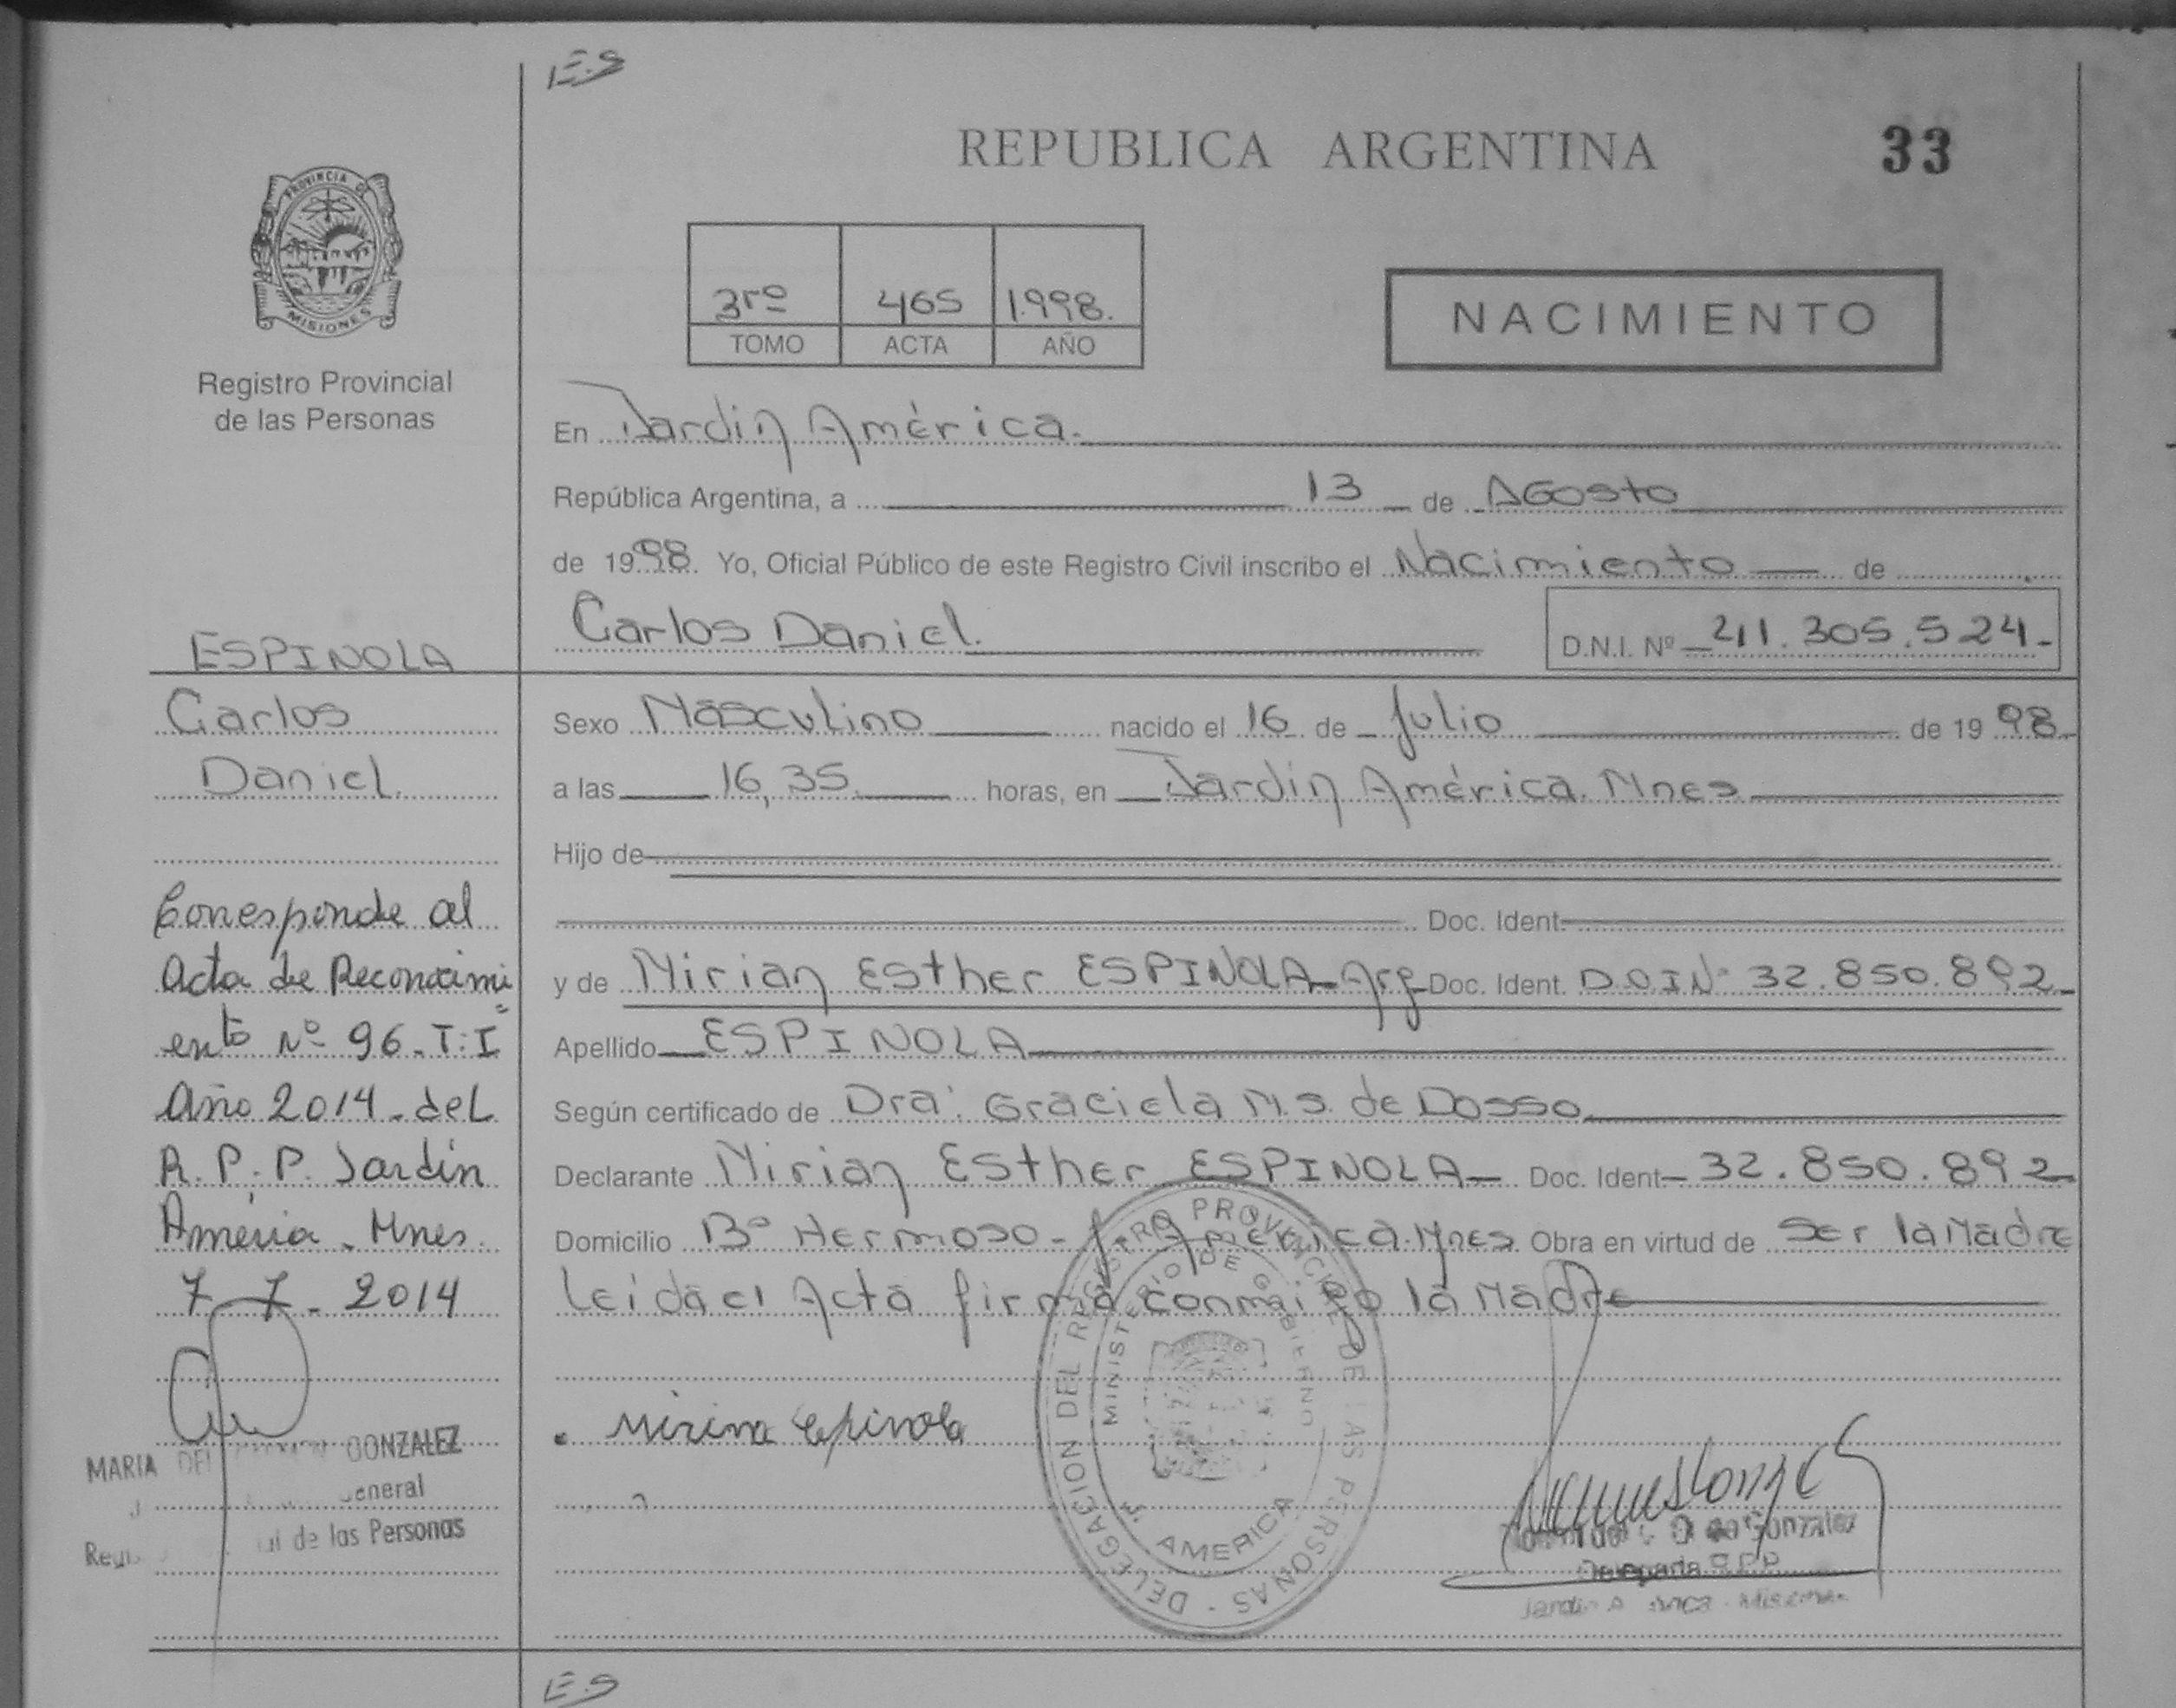 E.S
REPUBLICA ARGENTINA 33
PROVINCIA DE
MISIONES
Registro Provincial
de las Personas
3ro 465 1.998.
TOMO ACTA AÑO
NACIMIENTO
En Jardin América.
República Argentina, a 13 de Agosto
de 1998. Yo, Oficial Público de este Registro Civil inscribo el Nacimiento de
Carlos Daniel. D.N.I. Nº 41.305.524-
ESPINOLA
Carlos
Daniel.
Sexo Masculino nacido el 16 de Julio de 1998
a las 16,35 horas, en Jardín América. Mnes
Hijo de
Doc. Ident.
y de Mirian Esther ESPINOLA-Arg Doc. Ident. D.N.I Nº 32.850.892
Apellido ESPINOLA
Según certificado de Dra. Graciela M.S. de Dosso
Declarante Mirian Esther ESPINOLA Doc. Ident 32.850.892
Domicilio Bº Hermoso - J. América. Mnes Obra en virtud de Ser la Madre
Leida el Acta firma conmigo la Madre
Corresponde al
Acta de Reconocimi
ento Nº 96-T:I
Año 2014-del
R.P.P. Jardín
América. Mnes.
7-7-2014
MARIA DEL GONZALEZ
General
de las Personas
Mirina Espinola
DELEGACION DEL REGISTRO PROVINCIAL DE LAS PERSONAS
MINISTERIO DE GOBIERNO
J. AMERICA
de Gonzalez
Delegada R.P.P.
Jardin América - Misiones
E.S